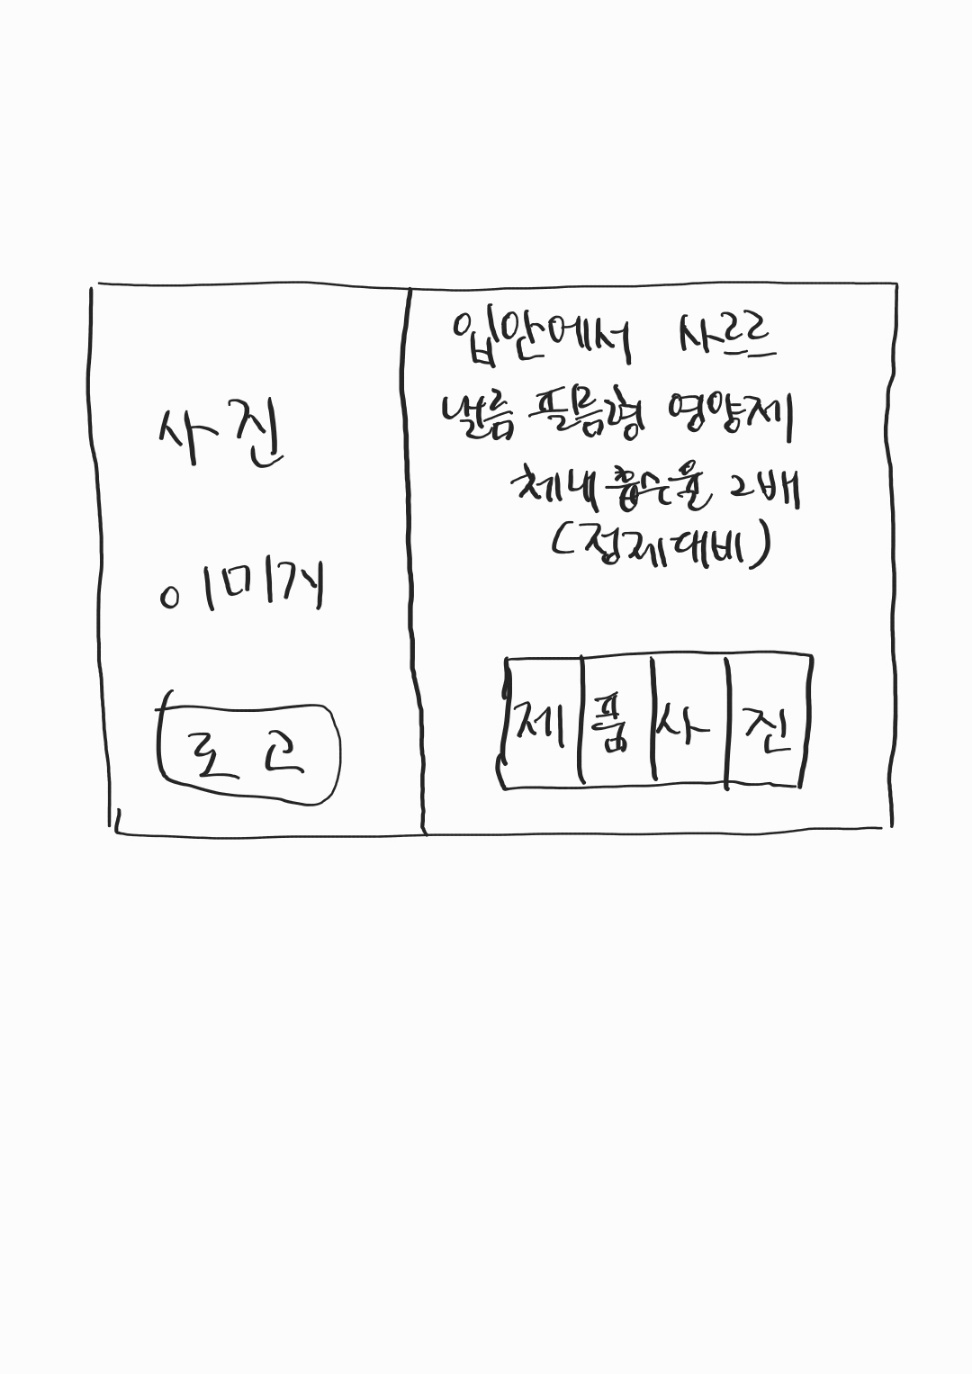 사진
이미지
로고
입안에서 사르르
낼름 필름형 영양제
체내 흡수율 2배
(정제대비)
제품사진